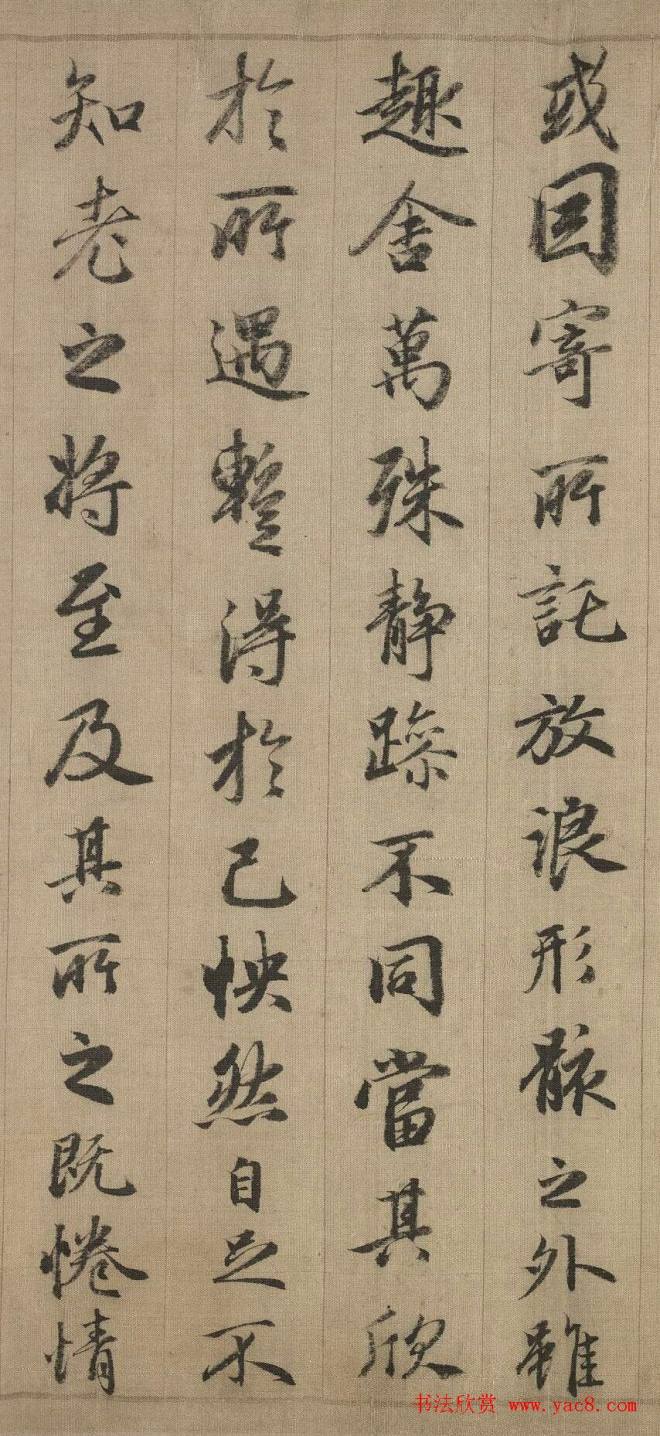 或因寄所託放浪形骸之外雖
趣舍萬殊静躁不同當其欣
於所遇蹔得於己怏然自足不
知老之將至及其所之既惓情
书法欣赏 www.yac8.com